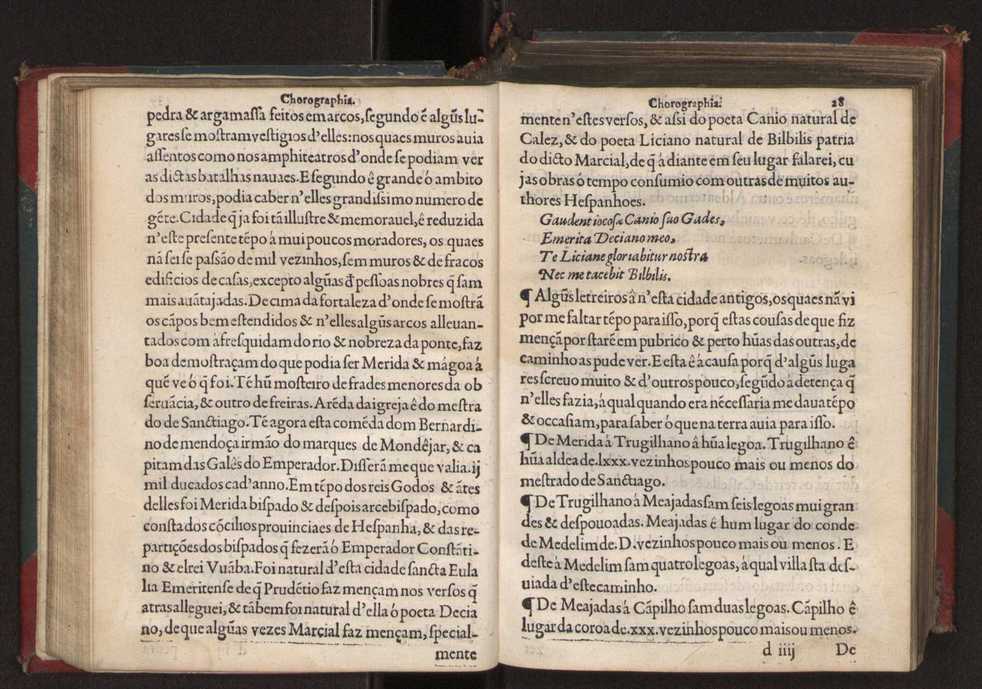 Chorographia.
pedra & argamassa feitos em arcos, segundo ẽ algũs lu-
gares se mostram vestigios d'elles: nos quaes muros auia
assentos como nos amphiteatros d'onde se podiam ver
as dictas batalhas nauaes. E segundo ê grande ó ambito
dos muros, podia caber n'elles grandissimo numero de
gẽte. Cidade q̃ ja foi tã illustre & memorauel, ê reduzida
n'este presente tẽpo â mui poucos moradores, os quaes
nã sei se passão de mil vezinhos, sem muros & de fracos
edificios de casas, excepto algũas d̃ pessoas nobres q̃ sam
mais auãtajadas. De cima da fortaleza d'onde se mostrã
os cãpos bem estendidos & n'elles algũs arcos alleuan-
tados com à fresquidam do rio & nobreza da ponte, faz
boa demostraçam do que podia ser Merida & mágoa á
quẽ ve ò q̃ foi. Tẽ hũ mosteiro de frades menores da ob
seruãcia, & outro de freiras. A rẽda da igreja ê do mestra
do de Sanctiago. Tẽ agora esta comẽda dom Bernardi-
no de mendoça irmão do marques de Mondêjar, & ca
pitam das Galês do Emperador. Disserã me que valia .ij
mil ducados cad'anno. Em tẽpo dos reis Godos & ãtes
delles foi Merida bispado & despois arcebispado, como
consta dos cõcilios prouinciaes de Hespanha, & das re-
partições dos bispados q̃ fezerã ó Emperador Constãti-
no & elrei Vuãba. Foi natural d'esta cidade sancta Eula
lia Emeritense de q̃ Prudẽtio faz mençam nos versos q̃
atras alleguei, & tãbem foi natural d'ella ó poeta Decia
no, de que algũas vezes Marçial faz mençam, special-
mente
Chorographia.
28
mente n'estes versos, & assi do poeta Canio natural de
Calez, & do poeta Liciano natural de Bilbilis patria
do dicto Marcial, de q̃ á diante em seu lugar falarei, cu
jas obras ó tempo consumio com outras de muitos au-
thores Hespanhoes.
Gaudent iocosæ Canio suo Gades,
Emerita Deciano meo,
Te Liciane gloriabitur nostra
Nec me tacebit Bilbilis.
¶ Algũs letreiros â n'esta cidade antigos, os quaes nã vi
por me faltar tẽpo para isso, porq̃ estas cousas de que fiz
mençã por starẽ em pubrico & perto hũas das outras, de
caminho as pude ver. E esta ê à causa porq̃ d'algũs luga
res screuo muito & d'outros pouco, segũdo à detença q̃
n'elles fazia, á qual quando era nécessaria me daua tẽpo
& occasiam, para saber ò que na terra auia para isso.
¶ De Merida â Trugilhano â hũa legoa. Trugilhano ê
hũa aldea de .lxxx. vezinhos pouco mais ou menos do
mestrado de Sanctiago.
¶ De Trugilhano á Meajadas sam seis legoas mui gran
des & despouoadas. Meajadas é hum lugar do conde
de Medelim de .D. vezinhos pouco mais ou menos. E
deste à Medelim sam quatro legoas, á qual villa sta des-
uiada d'este caminho.
¶ De Meajadas á Cãpilho sam duas legoas. Cãpilho ê
lugar da coroa de .xxx. vezinhos pouco mais ou menos.
d iiij De